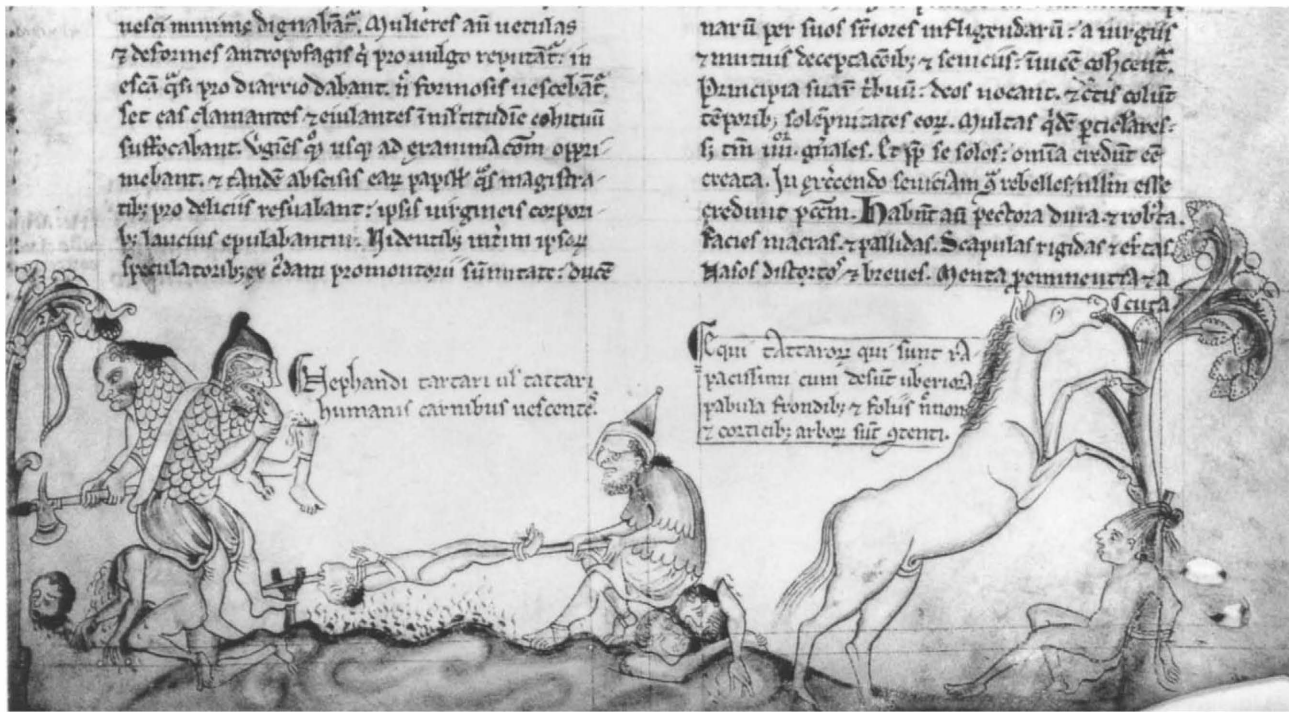 uesci minime dignabant̃. Mulieres aũ uetulas
⁊ deformes antropofagis q̇ pro uulgo reputant̃: in
escã q̃si pro diarrio dabant. ñ formosis uescebant̃,
set eas clamantes ⁊ eiulantes ĩ m̃ltitudiẽ cohituũ
suffocabant. Ỽgiẽs q̊ usq; ad exanimac̃om oppri
mebant. ⁊ tandẽ abscisis eaꝝ papill' q̃s magistra-
tib; pro deliciis res̃uabant: ipsis uirgineis corpori-
b; laucius epulabantur. Uidentib; int̃im ipsoꝝ
speculatorib; ex c̃dam promontorii sũmitate: ducẽ
narũ per suos s̃riores infligendarũ: a uirgiis
⁊ mutuis deceptac̃oib; ⁊ seuiciis: ñ cohc̃ent̃.
Principia suaꝝ t̃buũ: deos uocant. ⁊ c̃tis colũt
tẽporib; solẽpnitates eoꝝ. Multas q̃dẽ ꝑticlares:
s; tm̃ gñales. Et ꝓp̃ se solos: omĩa c̃dũt eẽ
creata. In ex̃cendo seuiciam ĩ rebelles: nłłm esse
credunt pc̃cm. Habñt aũ pectora dura ⁊ rob̃ta.
Facies macras. ⁊ pallidas. Scapulas rigidas ⁊ erc̃tas
Nasos distorto ⁊ breues. Menta p̃eminentia ⁊ a
cuta
Nephandi tartari uł tattari
humanis carnibus uescentẽ.
Equi tattaroꝝ qui sunt ra-
pacissimi cum desũt uberiora
pabula frondib; ⁊ foliis ñnon
⁊ corticib; arboꝝ sũt ꝯtenti.